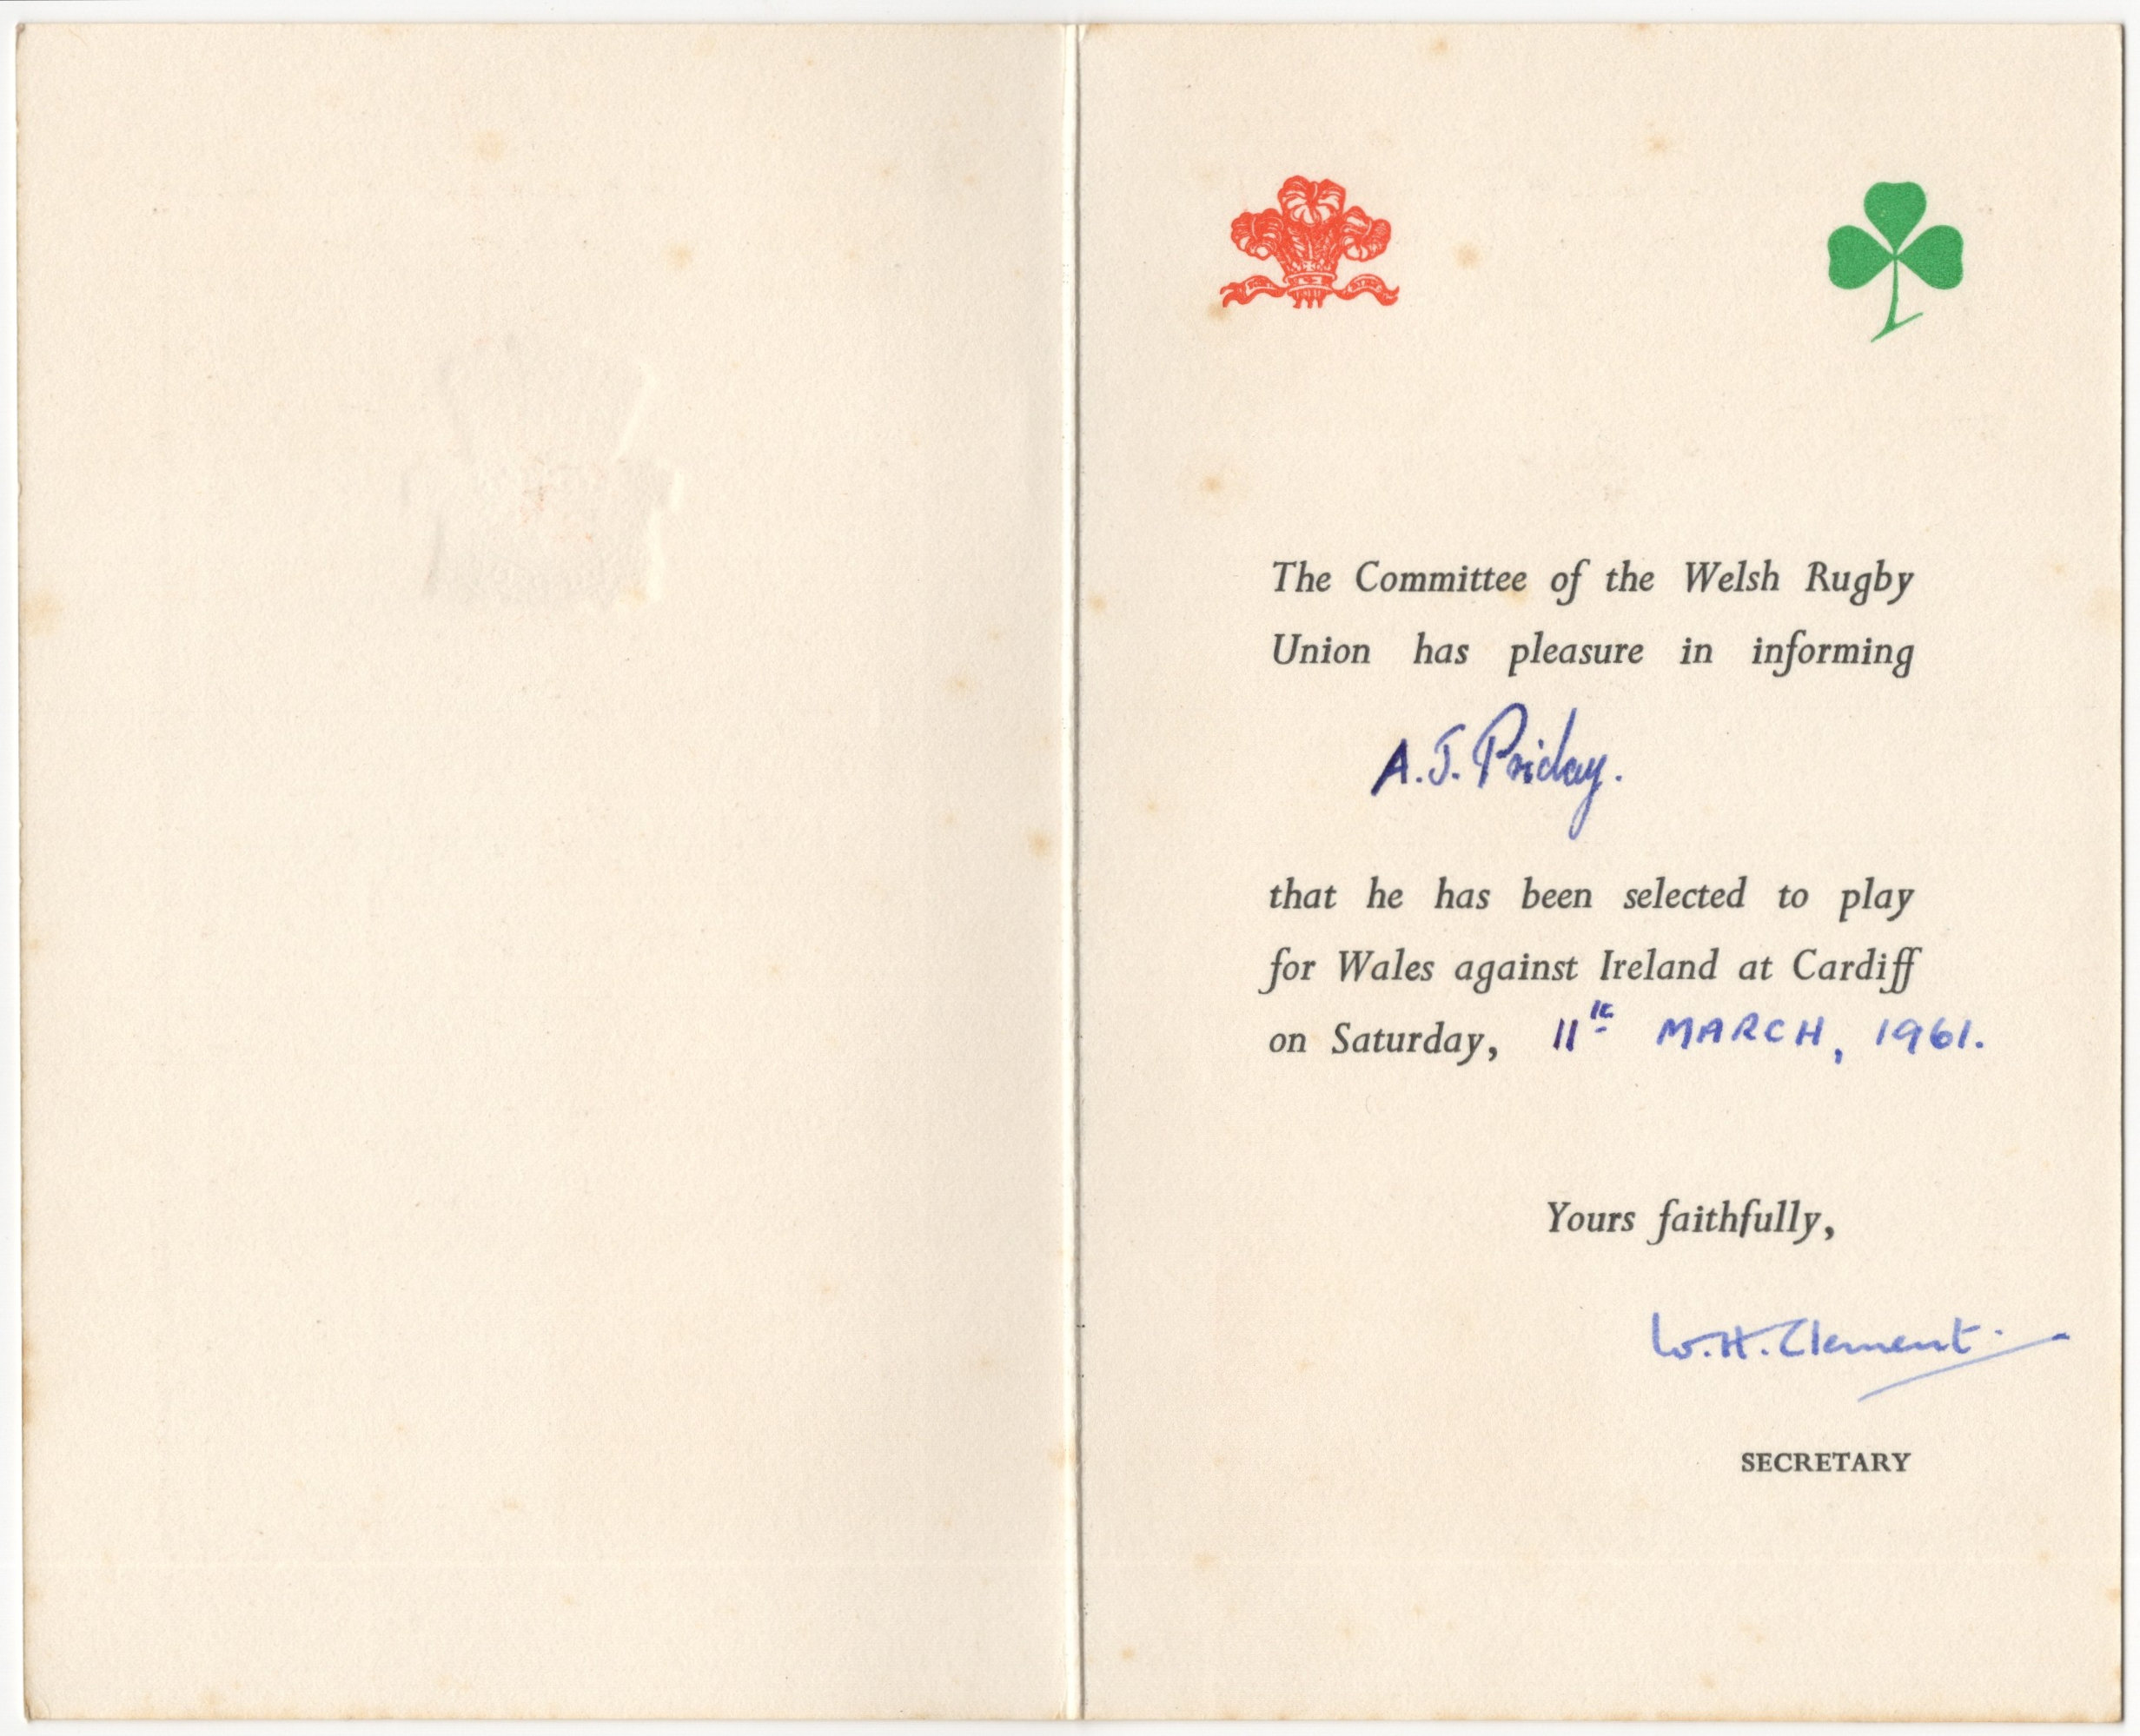 The Committee of the Welsh Rugby
Union has pleasure in informing
A.J. Priday.
that he has been selected to play
for Wales against Ireland at Cardiff
on Saturday, 11th MARCH, 1961.
Yours faithfully,
W.H. Clement.
SECRETARY